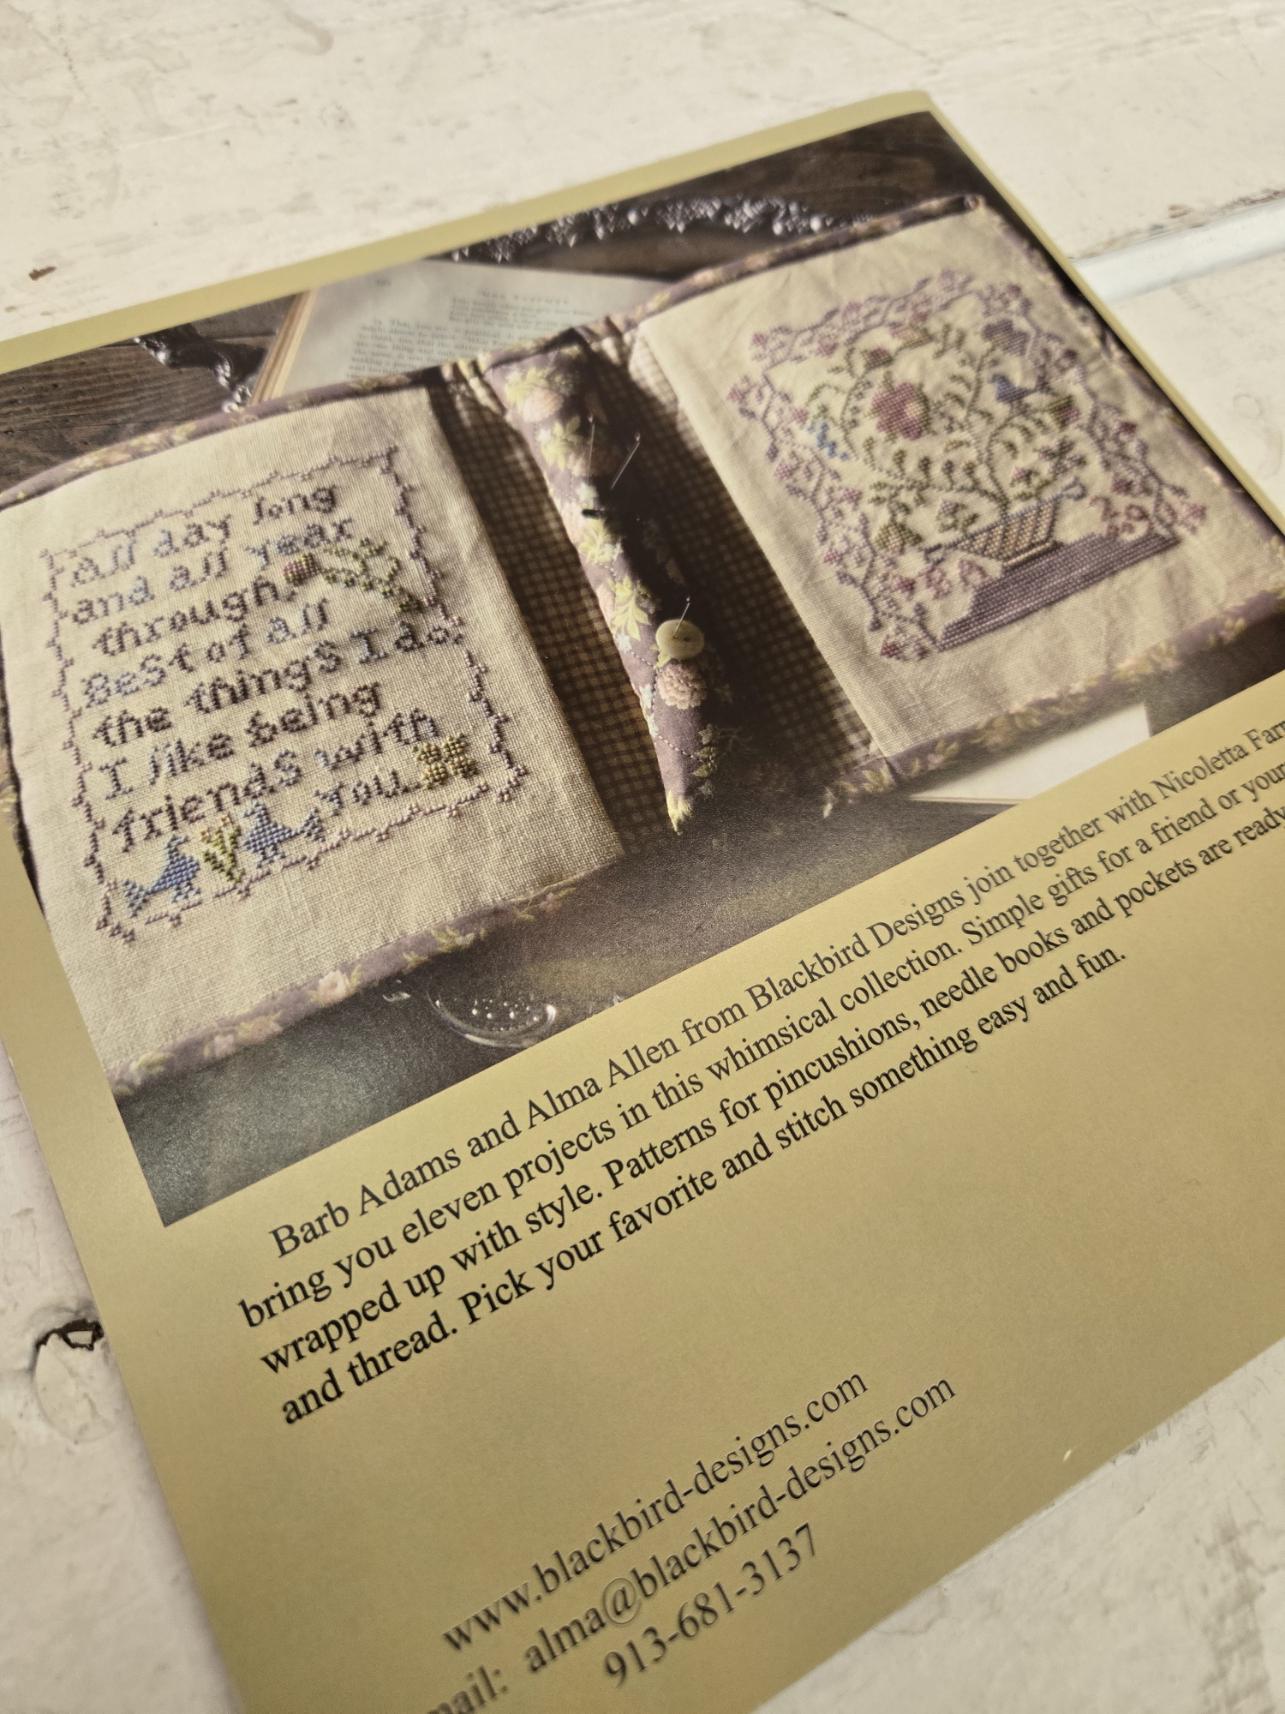 all day long
and all year
through,
Best of all
the things I do,
I like being
friends with
you.
Barb Adams and Alma Allen from Blackbird Designs join together with Nicoletta
bring you eleven projects in this whimsical collection. Simple gifts for a friend or your
wrapped up with style. Patterns for pincushions, needle books and pockets are ready
and thread. Pick your favorite and stitch something easy and fun.
www.blackbird-designs.com
mail: alma@blackbird-designs.com
913-681-3137